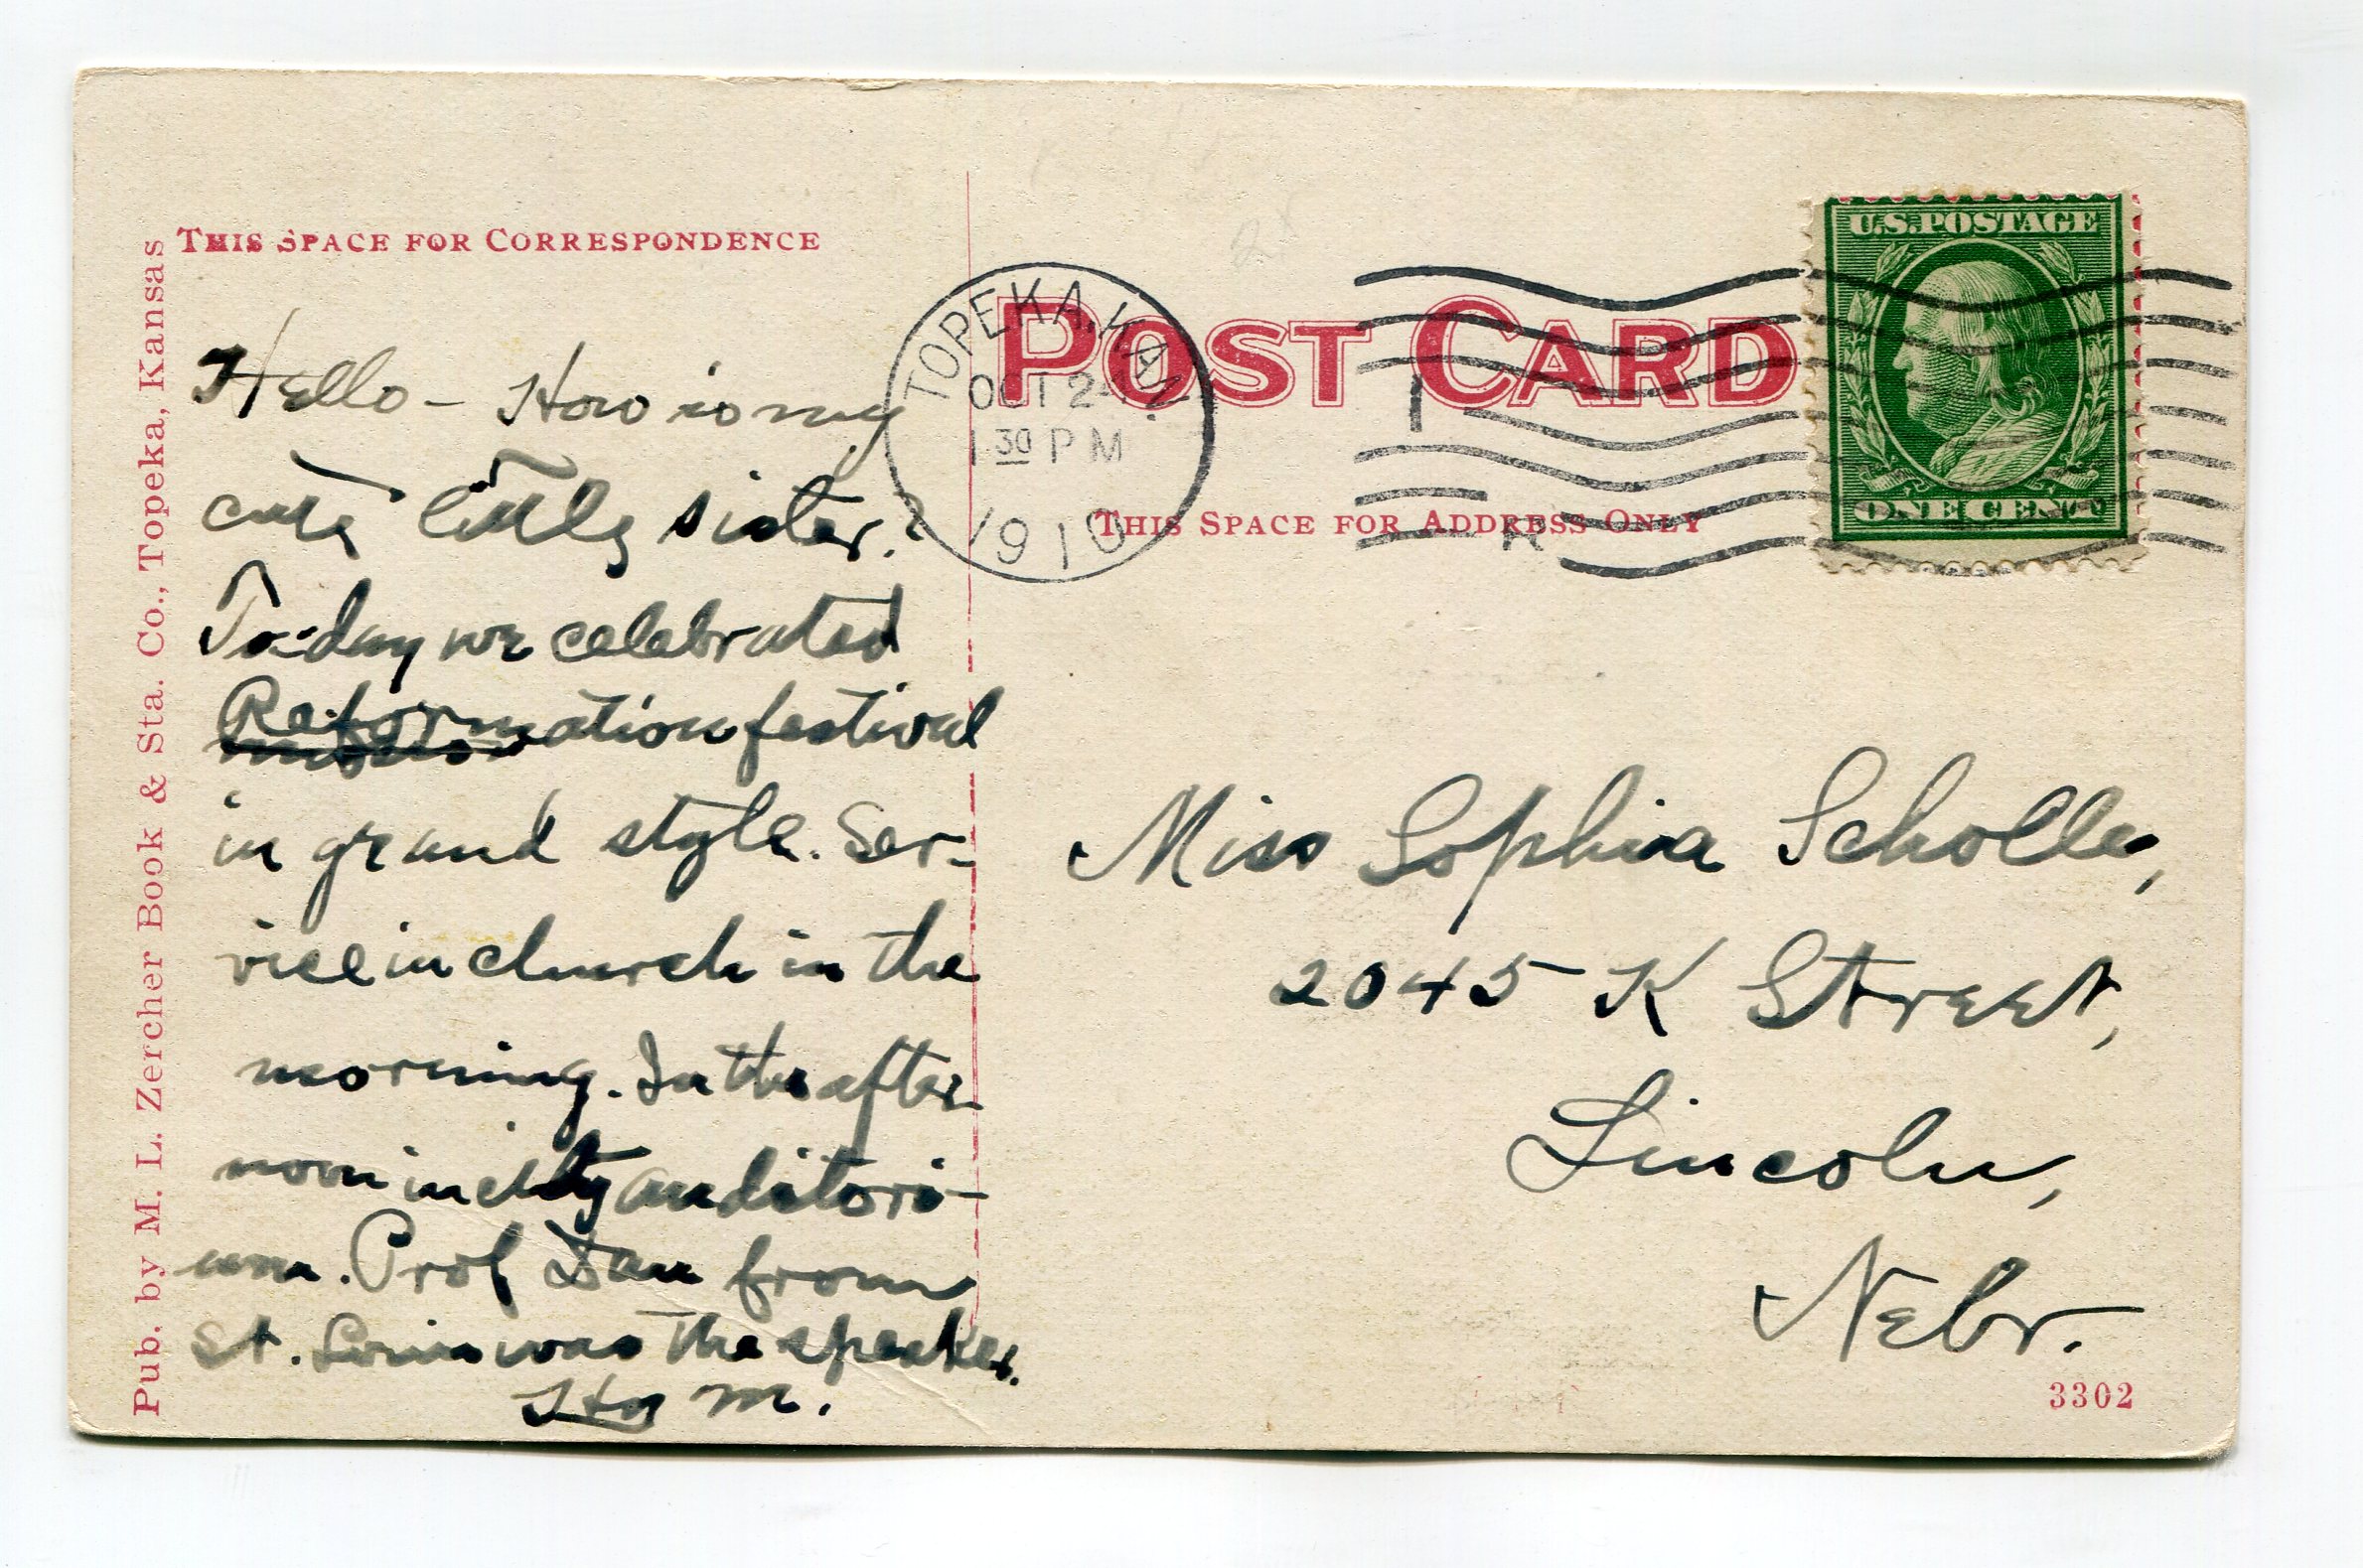 THIS SPACE FOR CORRESPONDENCE
Hello – How is my
cute little sister?
To-day we celebrated
Reformation festival
in grand style. Ser-
vice in church in the
morning. In the after-
noon in city auditori-
um. Prof Dau from
St. Louis was the speaker.
M.
Pub. by M. L. Zercher Book & Sta. Co., Topeka, Kansas
TOPEKA, KAN.
OCT 24
1 30 P M
1910
POST CARD
THIS SPACE FOR ADDRESS ONLY
U.S. POSTAGE
ONE CENT
Miss Sophia Scholle,
2045 K Street,
Lincoln,
Nebr.
3302